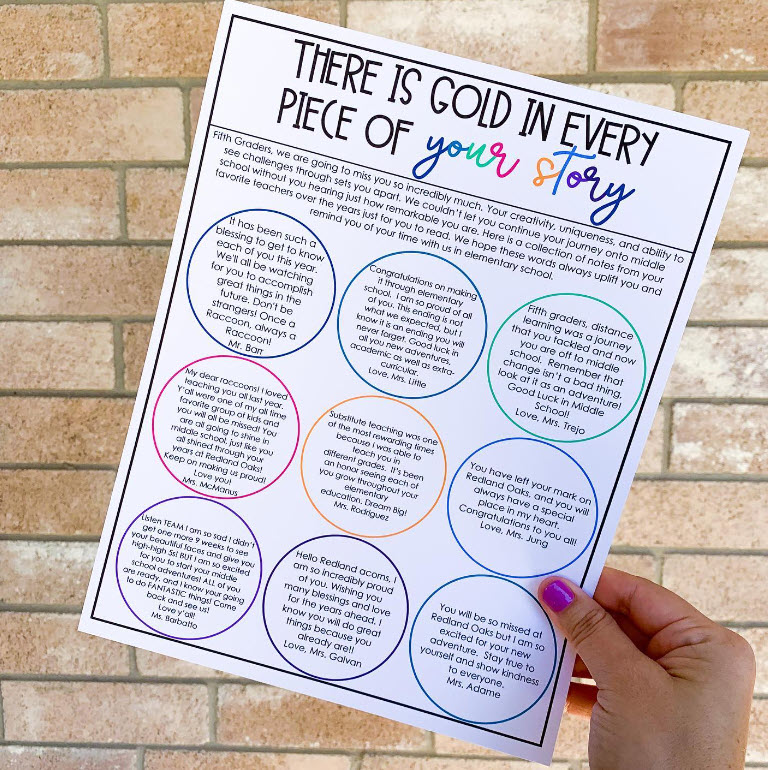 THERE IS GOLD IN EVERY
PIECE OF your story
Fifth Graders, we are going to miss you so incredibly much. Your creativity, uniqueness, and ability to
see challenges through sets you apart. We couldn't let you continue your journey onto middle
school without you hearing just how remarkable you are. Here is a collection of notes from your
favorite teachers over the years just for you to read. We hope these words always uplift you and
remind you of your time with us in elementary school.
It has been such a
blessing to get to know
each of you this year.
We'll all be watching
for you to accomplish
great things in the
future. Don't be
strangers! Once a
Raccoon, always a
Raccoon!
Mr. Barr
Congratulations on making
it through elementary
school. I am so proud of all
of you. This ending is not
what we expected, but I
know it is an ending you will
never forget. Good luck in
all you new adventures,
academic as well as extra-
curricular.
Love, Mrs. Little
Fifth graders, distance
learning was a journey
that you tackled and now
you are off to middle
school. Remember that
change isn't a bad thing,
look at it as an adventure!
Good Luck in Middle
School!
Love, Mrs. Trejo
My dear raccoons! I loved
teaching you all last year.
Y'all were one of my all time
favorite group of kids and
you will all be missed! You
are all going to shine in
middle school, just like you
all shined through your
years at Redland Oaks!
Keep on making us proud!
Love you!
Mrs. McManus
Substitute teaching was one
of the most rewarding times
because i was able to
teach you in
different grades. It's been
an honor seeing each of
you grow throughout your
elementary
education. Dream Big!
Mrs. Rodriguez
You have left your mark on
Redland Oaks, and you will
always have a special
place in my heart.
Congratulations to you all!
Love, Mrs. Jung
Listen TEAM I am so sad I didn't
get one more 9 weeks to see
your beautiful faces and give you
high-high 5s! BUT I am so excited
for you to start your middle
school adventures! ALL of you
are ready, and I know your going
to do FANTASTIC things! Come
back and see us!
Love y'all!
Ms. Barbatto
Hello Redland acorns, I
am so incredibly proud
of you. Wishing you
many blessings and love
for the years ahead. I
know you will do great
things because you
already are!!
Love, Mrs. Galvan
You will be so missed at
Redland Oaks but I am so
excited for your new
adventure. Stay true to
yourself and show kindness
to everyone.
Mrs. Adame